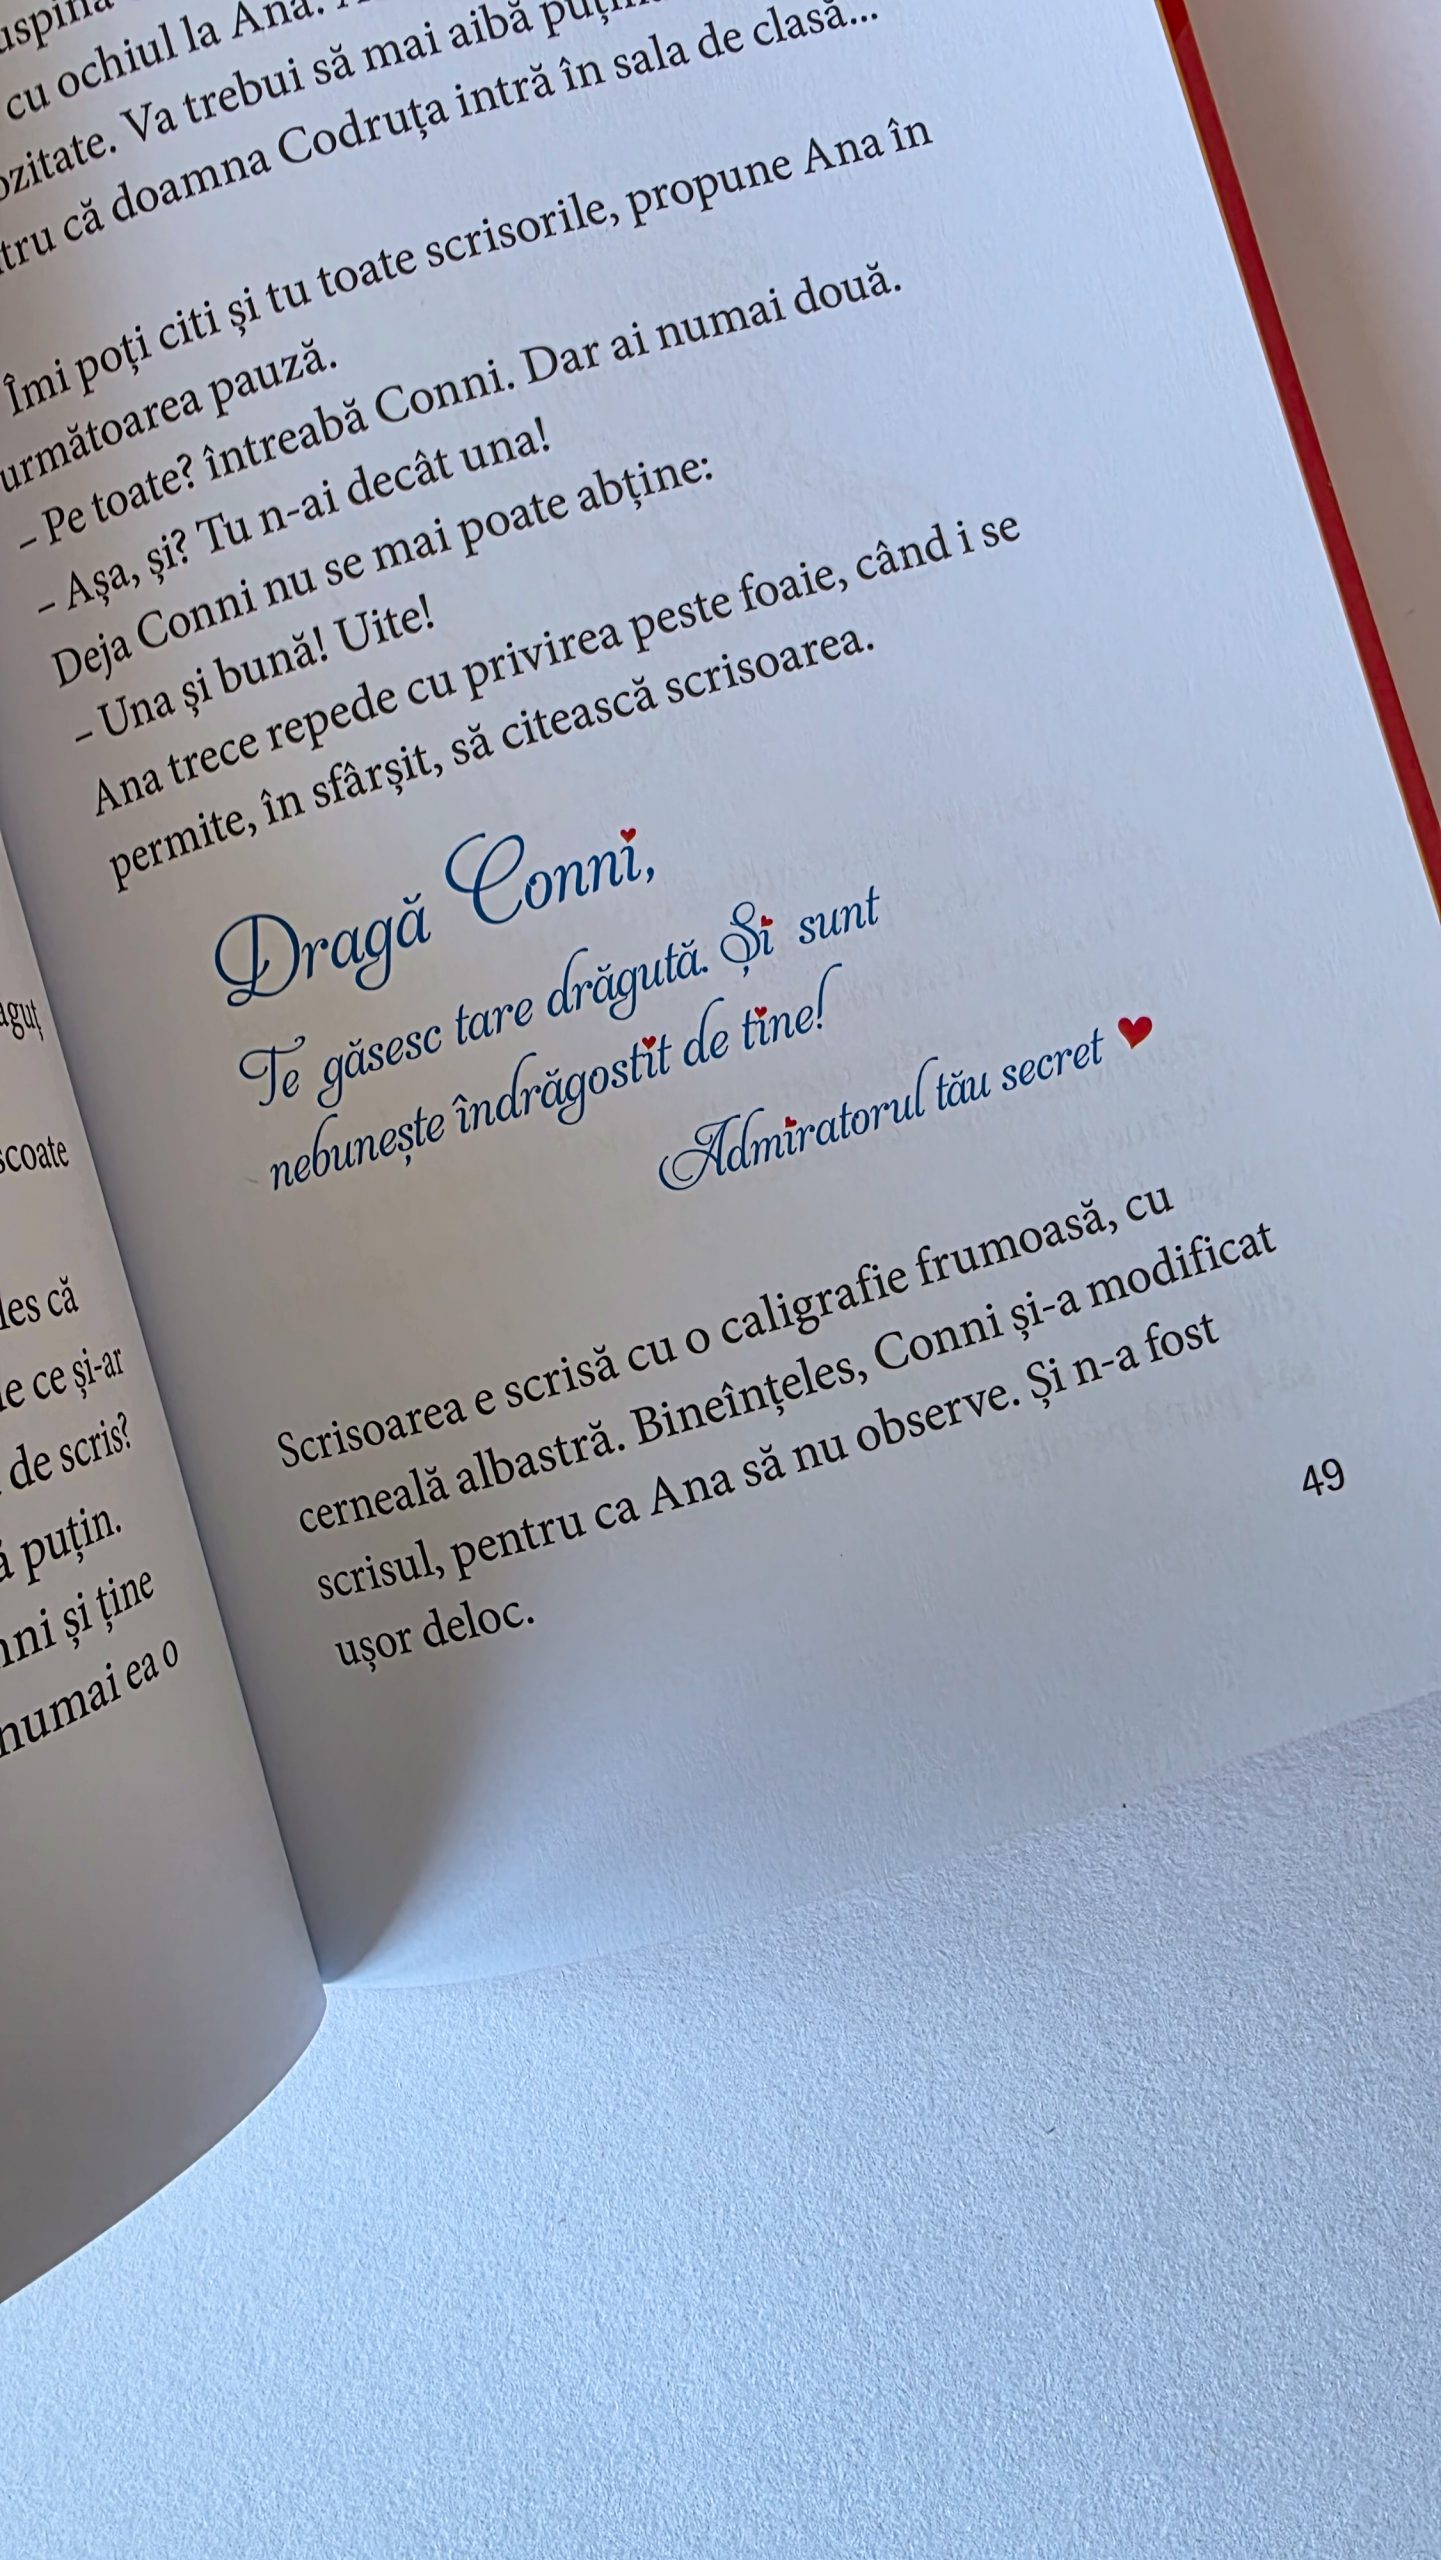 aguț
scoate
les că
e ce și-ar
de scris?
puțin.
nni și ține
numai ea o
cu ochiul la Ana.
ozitate. Va trebui să mai aibă
tru că doamna Codruța intră în sala de clasă...
Îmi poți citi și tu toate scrisorile, propune Ana în
următoarea pauză.
– Pe toate? întreabă Conni. Dar ai numai două.
– Așa, și? Tu n-ai decât una!
Deja Conni nu se mai poate abține:
– Una și bună! Uite!
Ana trece repede cu privirea peste foaie, când i se
permite, în sfârșit, să citească scrisoarea.
Dragă Conni,
Te găsesc tare drăguță. Și sunt
nebunește îndrăgostit de tine!
Admiratorul tău secret ♥
Scrisoarea e scrisă cu o caligrafie frumoasă, cu
cerneală albastră. Bineînțeles, Conni și-a modificat
scrisul, pentru ca Ana să nu observe. Și n-a fost
ușor deloc.
49